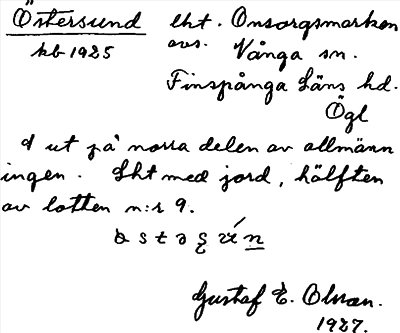 Östersund lht. Onsorgsmarken
kb 1925 avs. Vånga sn.
Finspånga Läns hd.
Ögl
d ut på norra delen av allmänn
ingen. Lht med jord, hälften
av lotten n:r 9.
Gustaf E. Olsson.
1927.